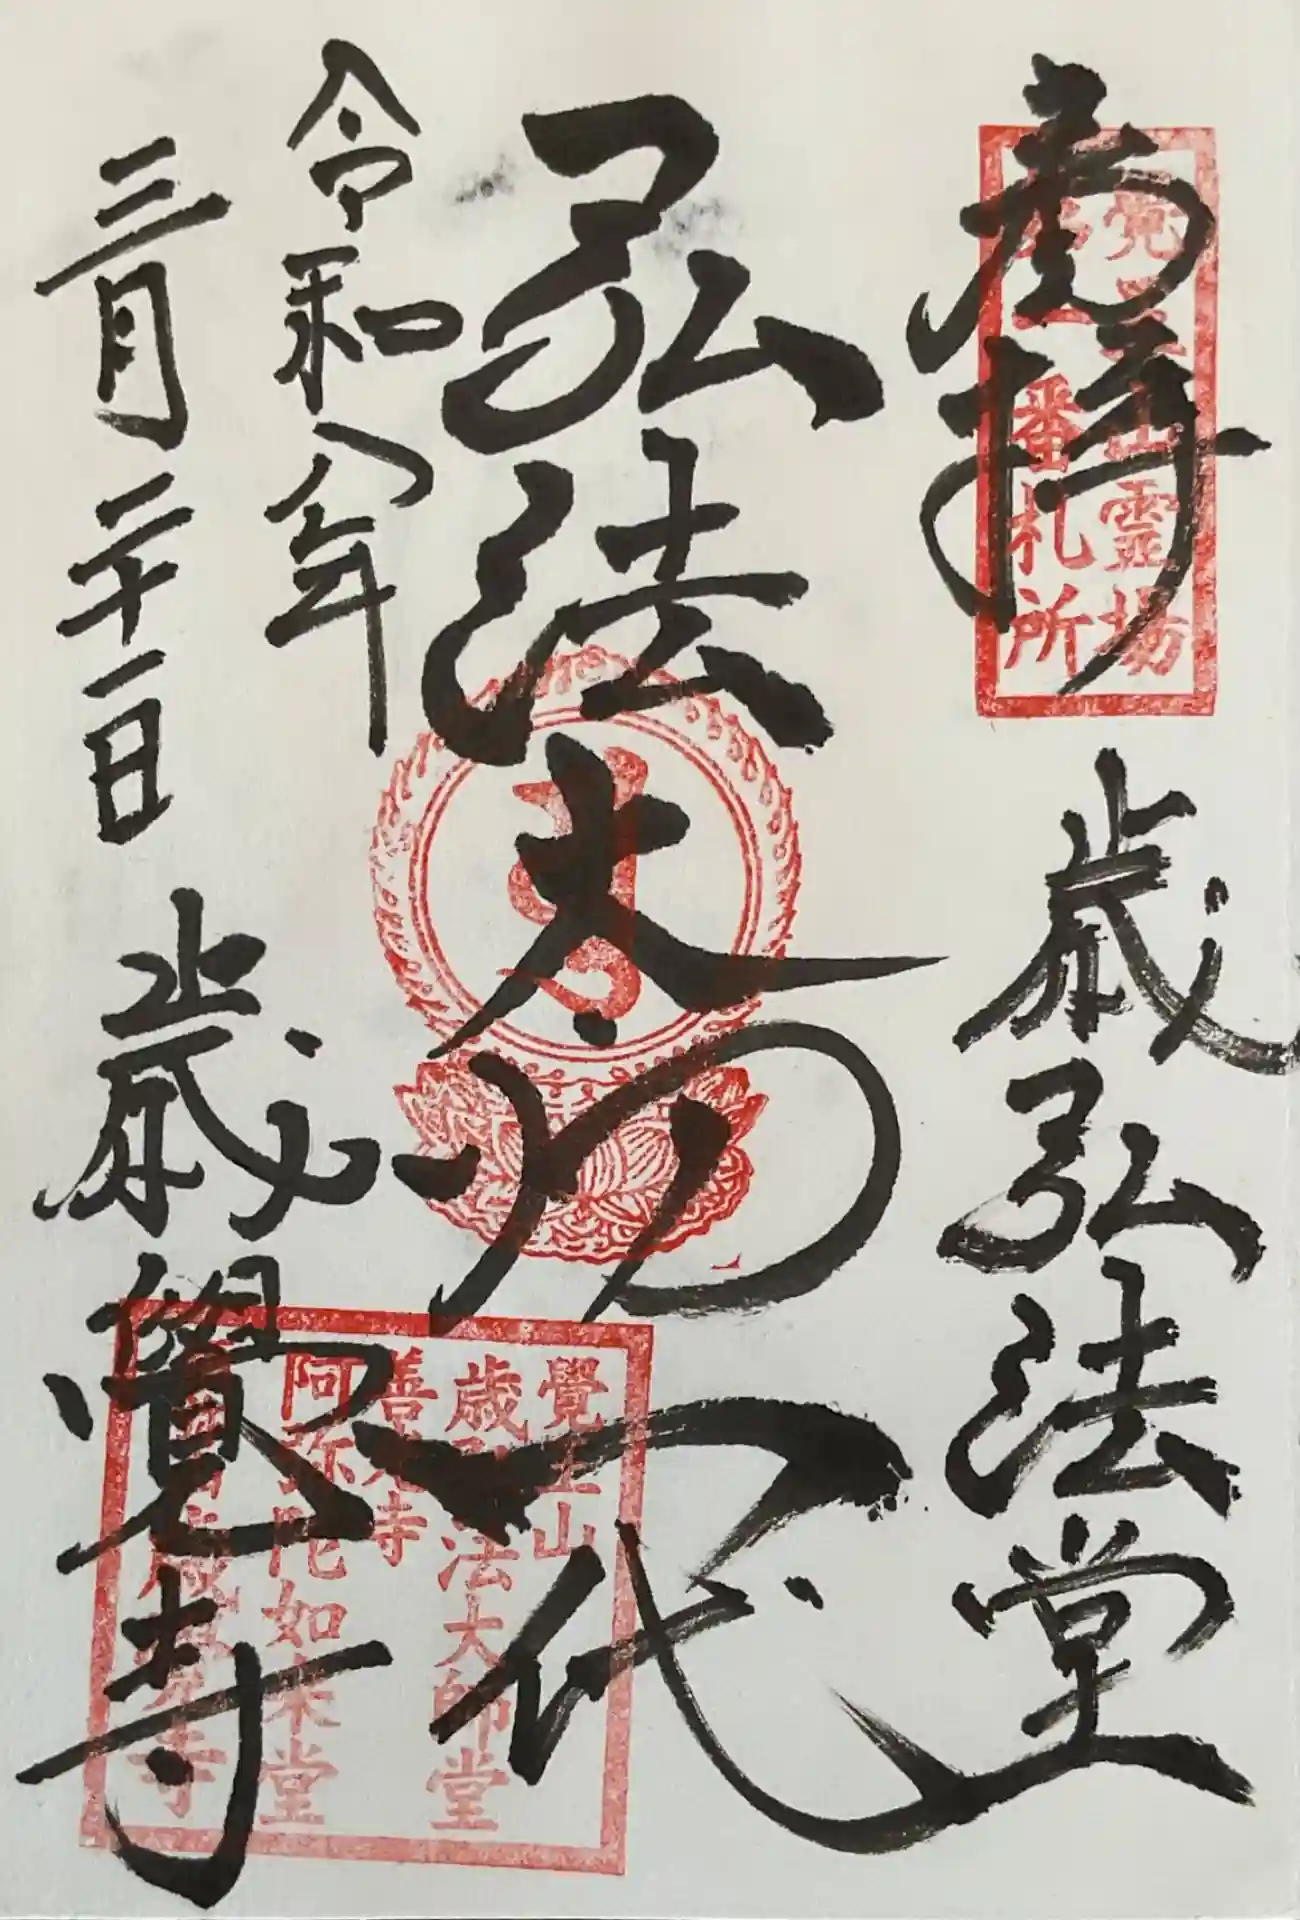 奉拝
歳弘法堂
弘法大師
一代
令和八年
三月二十一日
歳弘
覺寺
霊場
番札所
覺王山
歳弘法大師堂
善光寺
阿弥陀如来堂